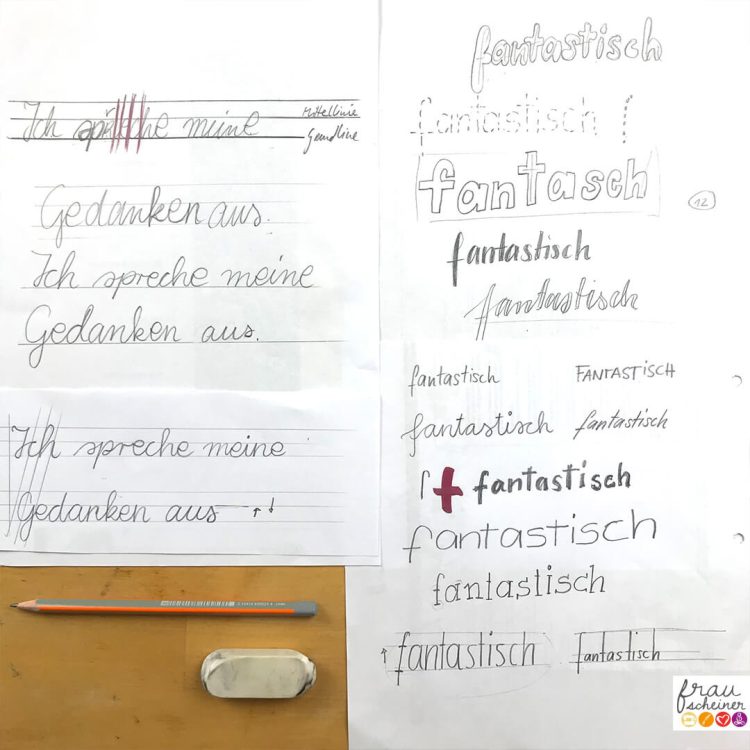 Ich spreche meine
Mittellinie
Grundlinie
Gedanken aus.
Ich spreche meine
Gedanken aus.
Ich spreche meine
Gedanken aus
fantastisch
fantastisch f
fantasch
12
fantastisch
fantastisch
fantastisch FANTASTISCH
fantastisch fantastisch
f t fantastisch
fantastisch
fantastisch
fantastisch fantastisch
frau
scheiner